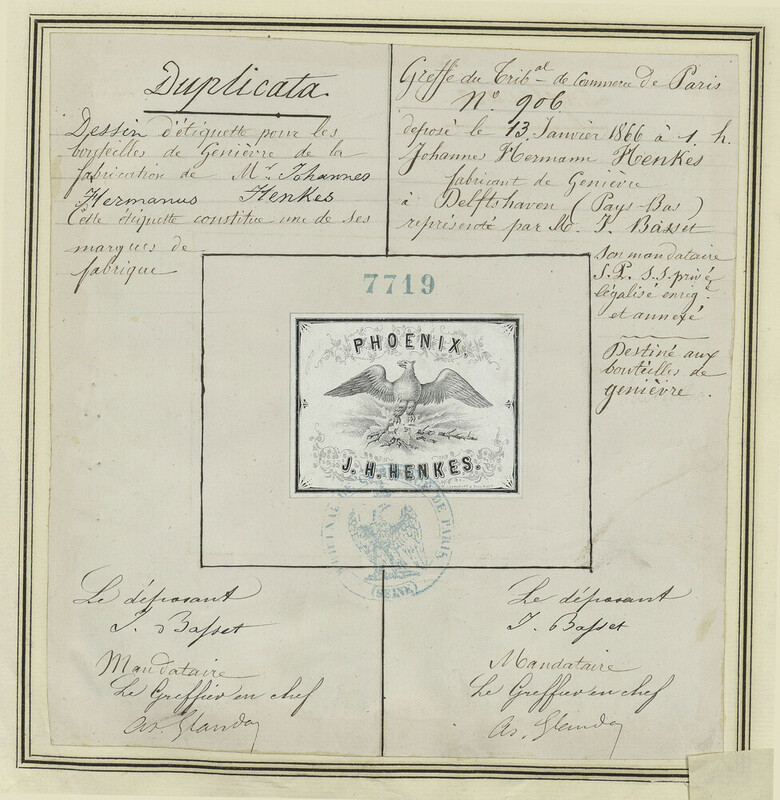 Duplicata
Dessin d'étiquette pour les
bouteilles de Genièvre de la
fabrication de Mr. Johannes
Hermanus Henkes
Cette étiquette constitue une de ses
marques de
fabrique
Greffe du Tribal de Commerce de Paris
No 906
déposé le 13 Janvier 1866 à 1. h.
Johannes Hermann Henkes
fabricant de Genièvre
à Delftshaven (Pays-Bas)
représenté par M. J. Basset
son mandataire
S.P. S.S. privé
légalisé enreg.
et annexé
Destiné aux
bouteilles de
genièvre.
7719
PHOENIX.
J. H. HENKES.
TRIBUNAL DE COMMERCE DE PARIS
(SEINE)
Le déposant
J. Basset
Mandataire
Le Greffier en chef
Le déposant
J. Basset
Mandataire
Le Greffier en chef